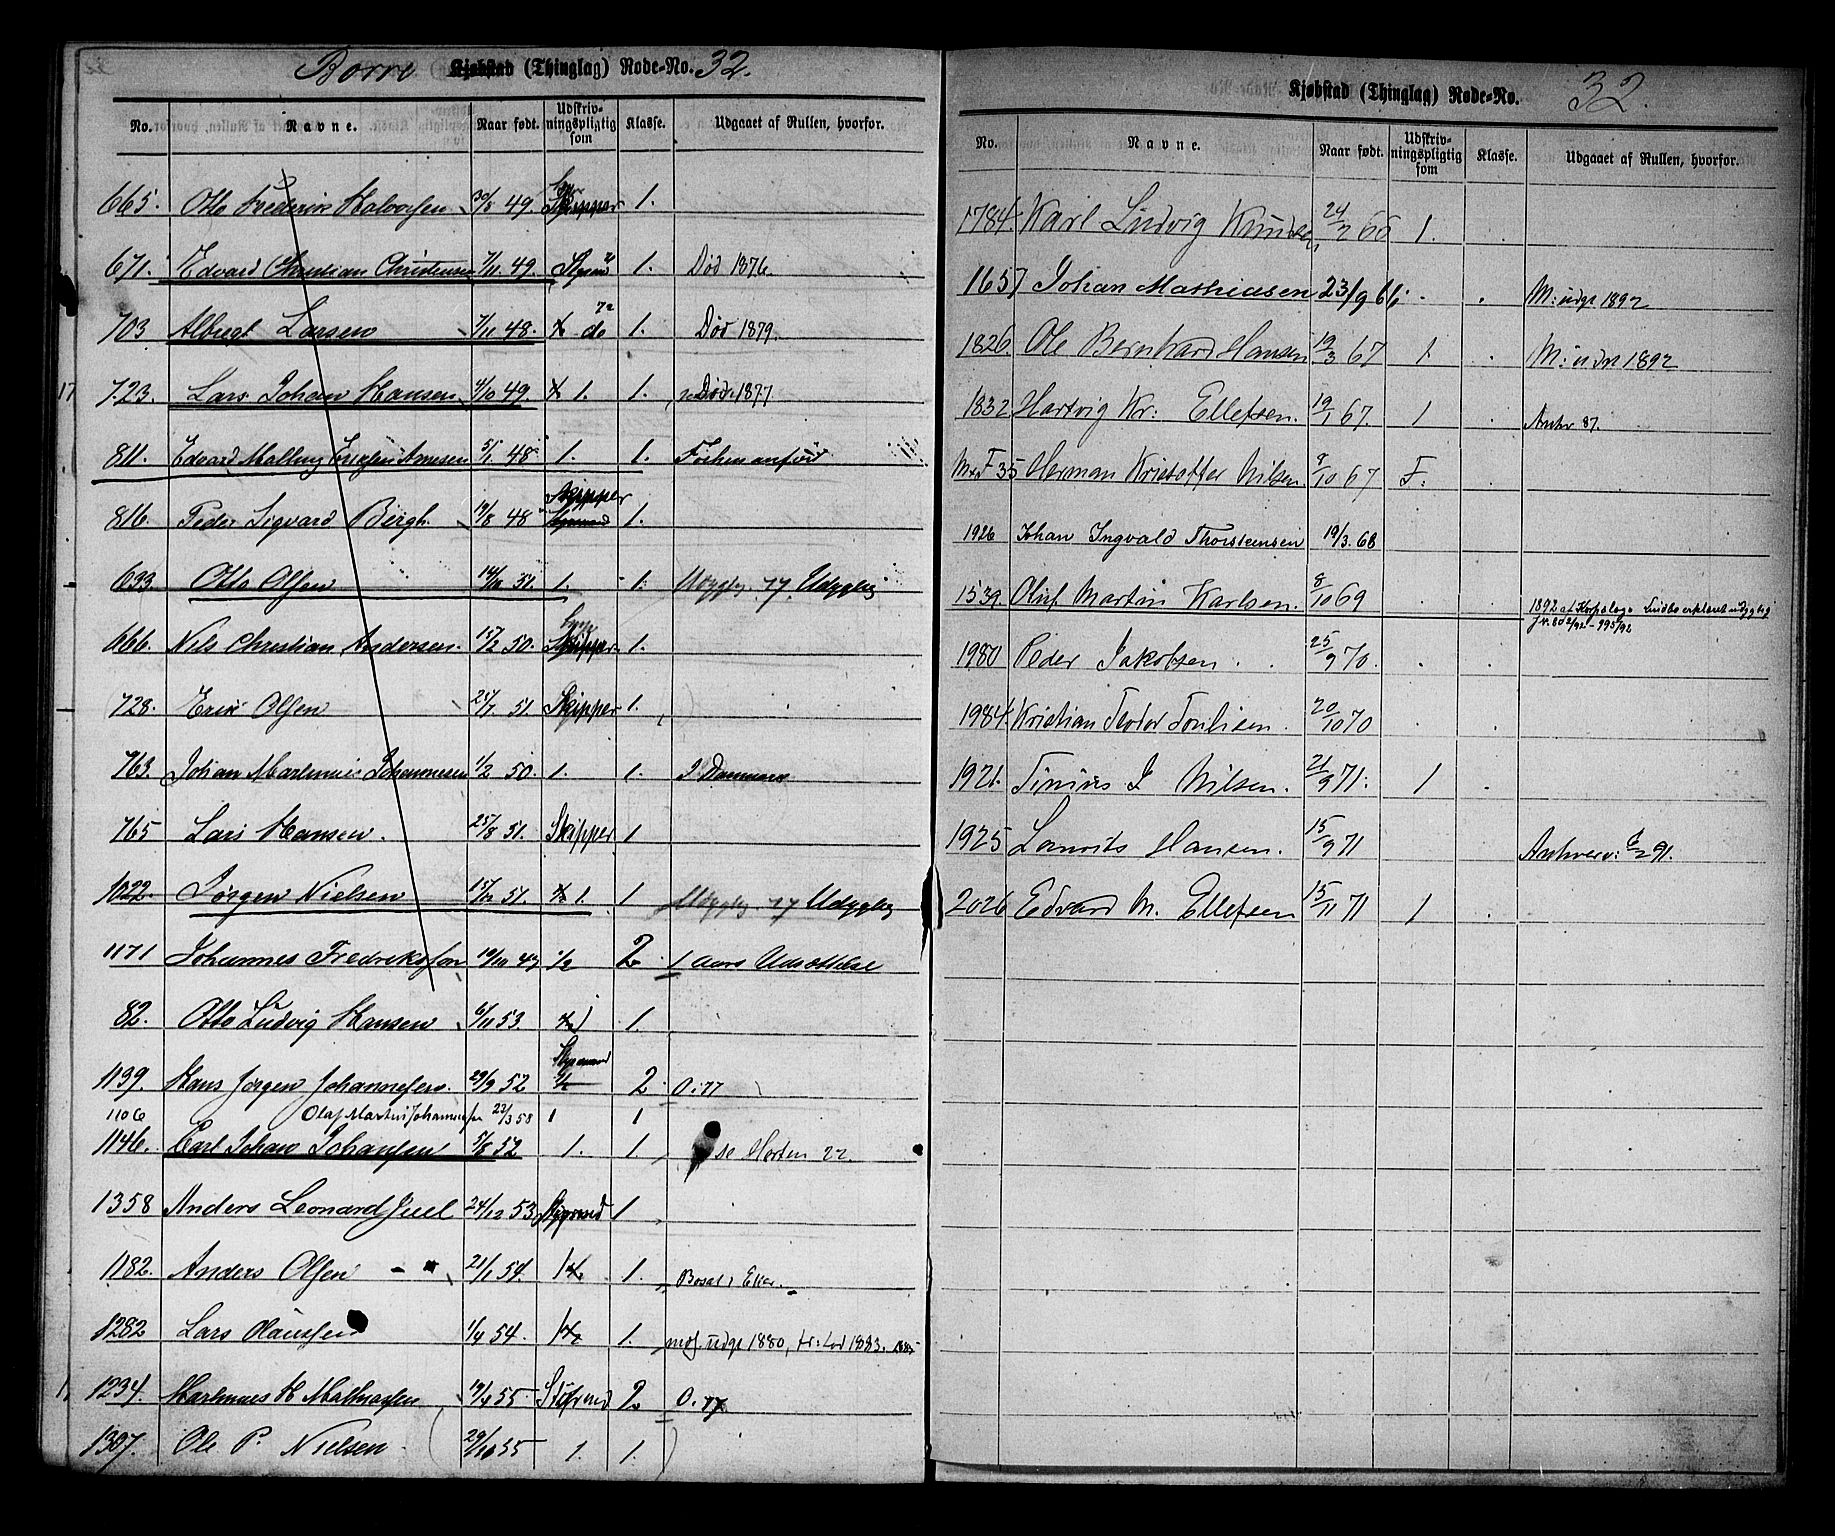 Borre Kjøbstad (Thinglag) Rode-No. 32.
No. Navne. Naar født. Udskrivningspligtig som Klasse. Udgaaet af Rullen, hvorfor.
665. Otto Frederik Halvorsen 30/8 49. Skipper 1.
671. Edvard Christian Christensen 7/11 49. 1. Død 1876.
703 Albregt Larsen 7/11 48. do 1. Død 1879.
723. Lars Johan Hansen 4/10 49. 1. 1. Død 1877
811. Edvard Malling Arnesen 5/1 48 1. 1.
816. Peder Sigvard Bergh. 19/8 48 Skipper 1.
633. Otto Olsen 51. 1. 1. 77 Udygtig
666. Nels Christian Andersen. 15/2 50. Skipper 1.
728. Erik Olsen 51. Skipper 1.
763. Johan Martinius Johannesen 1/2 50. 1. 1.
765 Lars Hansen. 25/8 51. Skipper 1
1022. Jørgen Nielsen 51. 1. 1 77 Udygtig
1171 Johannes Fredriksson 19/10 47 1/2 2 1 Aars Udsættelse
82. Otto Ludvig Hansen 6/11 53 1.
1139. Hans Jørgen Johannesen. 29/9 52 1/2 2 O. 77
1106 Olaf Martin Johannesen 22/3 58 1 1
1146. Carl Johan Johansen 5/8 52 1. 1. se Horten 22.
1358 Anders Leonard Juel 24/12 53 1
1182. Anders Olsen 21/1 54. 1 1.
1282 Lars Olaussen 1/4 54. 1 1. udgt 1880, 1883. 1885
1234. Martinues H Mathiassen 19/4 55 2 O. 77
1307. Ole P. Nielsen 29/10 55 1. 1.
Kjøbstad (Thinglag) Rode-No. 32.
No. Navne. Naar født. Udskrivningspligtig som Klasse. Udgaaet af Rullen, hvorfor.
1784. Karl Ludvig Knudsen 24/2 66 1.
1657 Johan Mathiesen 23/9 66 M: udgt 1892
1826. Ole Bernhard Hansen 19/3 67 1. M: udgt 1892
1832 Hartvig Kr: Ellefsen. 19/1 67. 1
F 35 Herman Kristoffer Nilsen 8/10 67 F.
1926 Johan Ingvald Thorstensen 19/3. 68
1539. Oluf Martin Karlsen. 8/10 69 1892 af Korpslæge Lindbo erklæret udygtig
1980 Peder Jakobsen. 25/9 70.
1984. Kristian Teodor 20/10 70
1921. Tinius J Nilsen. 21/9 71. 1
1925 Lauritz Hansen. 15/9 71
2026 Edvard M. Ellefsen 15/11 71 1